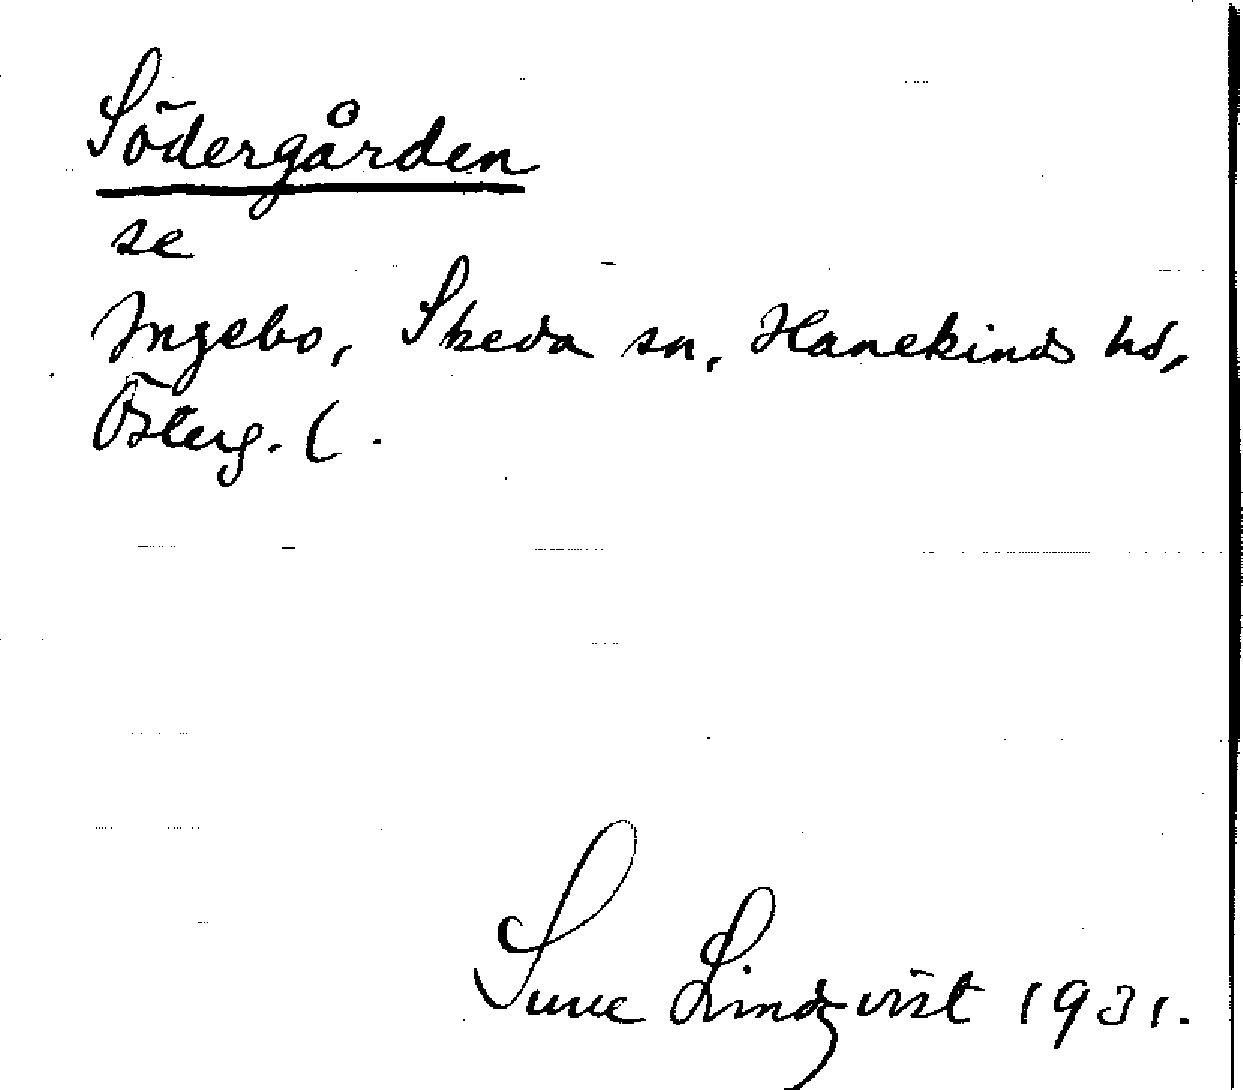 Södergården
se
Ingebo, Skeda sn, Hanekinds hd,
Österg. l.
Sune Lindqvist 1931.